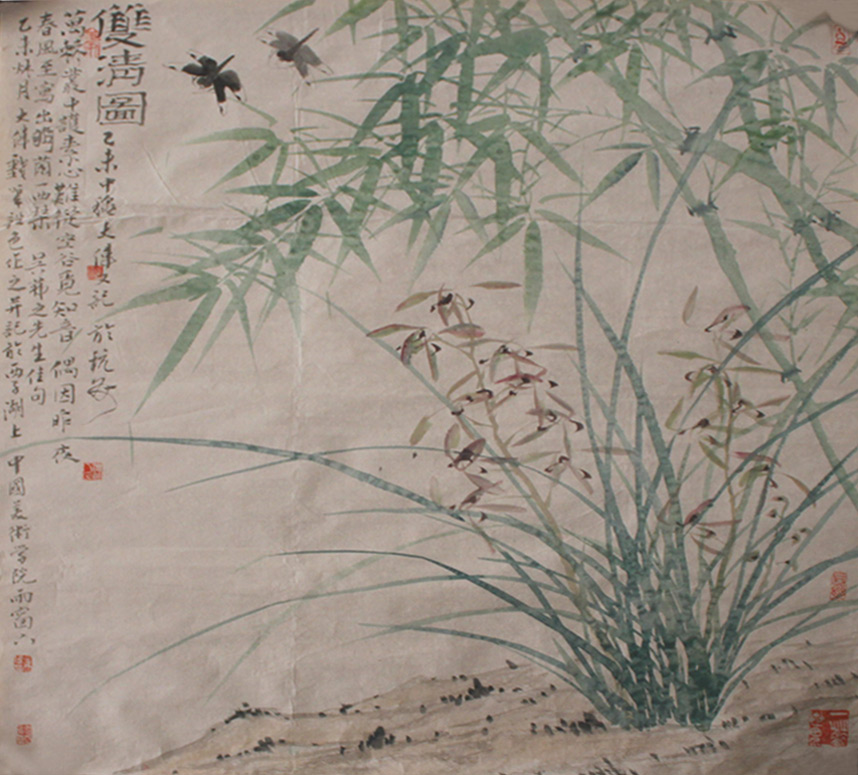 雙清圖
乙未中秋大偉又記於杭
萬叢中護素心難從空谷覓知音偶因昨夜
春風至寫出幽蘭一兩叢 吳茀之先生佳句
乙未秋月大偉設色作之并記於西子湖上 中國美術學院雨窗